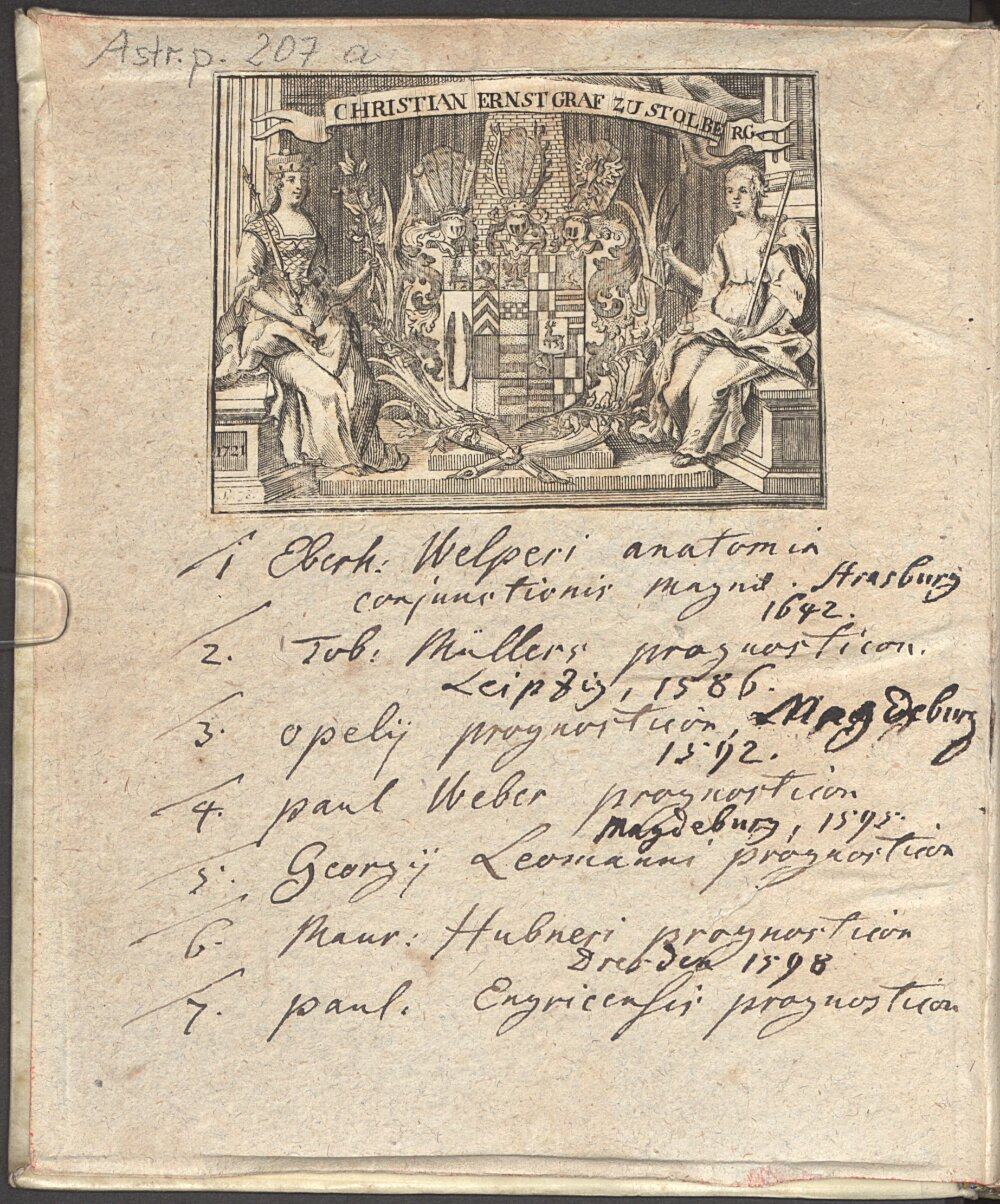 Astr. p. 207 a
CHRISTIAN ERNST GRAF ZU STOLBERG
1721
1 Eberh: Welperi anatomia
conjunctionis magnæ. Strasburg
1642.
2. Tob: Müllers prognosticon.
Leipzig, 1586.
3. opelij prognosticon, Magdeburg
1592.
4. paul Weber prognosticon
Magdeburg, 1595.
5. Georgij Leomanni prognosticon
6. Maur: Hubneri prognosticon
Dresden 1598
7. paul. Engricensis prognosticon